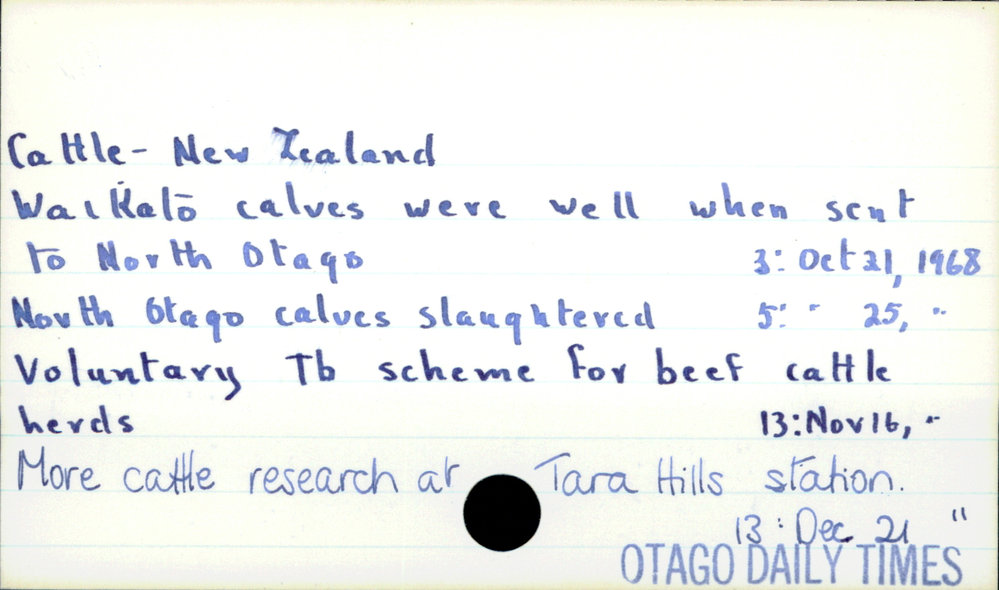 Cattle - New Zealand
Waikato calves were well when sent
to North Otago 3: Oct 21, 1968
North Otago calves slaughtered 5: " 25, "
Voluntary Tb scheme for beef cattle
herds 13: Nov 16, "
More cattle research at Tara Hills station.
13: Dec 21 "
OTAGO DAILY TIMES